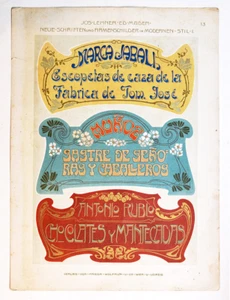 JOS. LEHNER, ED. MISSEN
NEUE SCHRIFTEN UND FIRMENSCHILDER IM MODERNEN STIL I
13
MARCA JABALI,
Escopetas de caza de la
Fabrica de Tom. José
MUÑOZ
SASTRE DE SEÑO-
RAS Y CABALLEROS
ANTONIO RUBIO
CHOCOLATES Y MANTECADAS